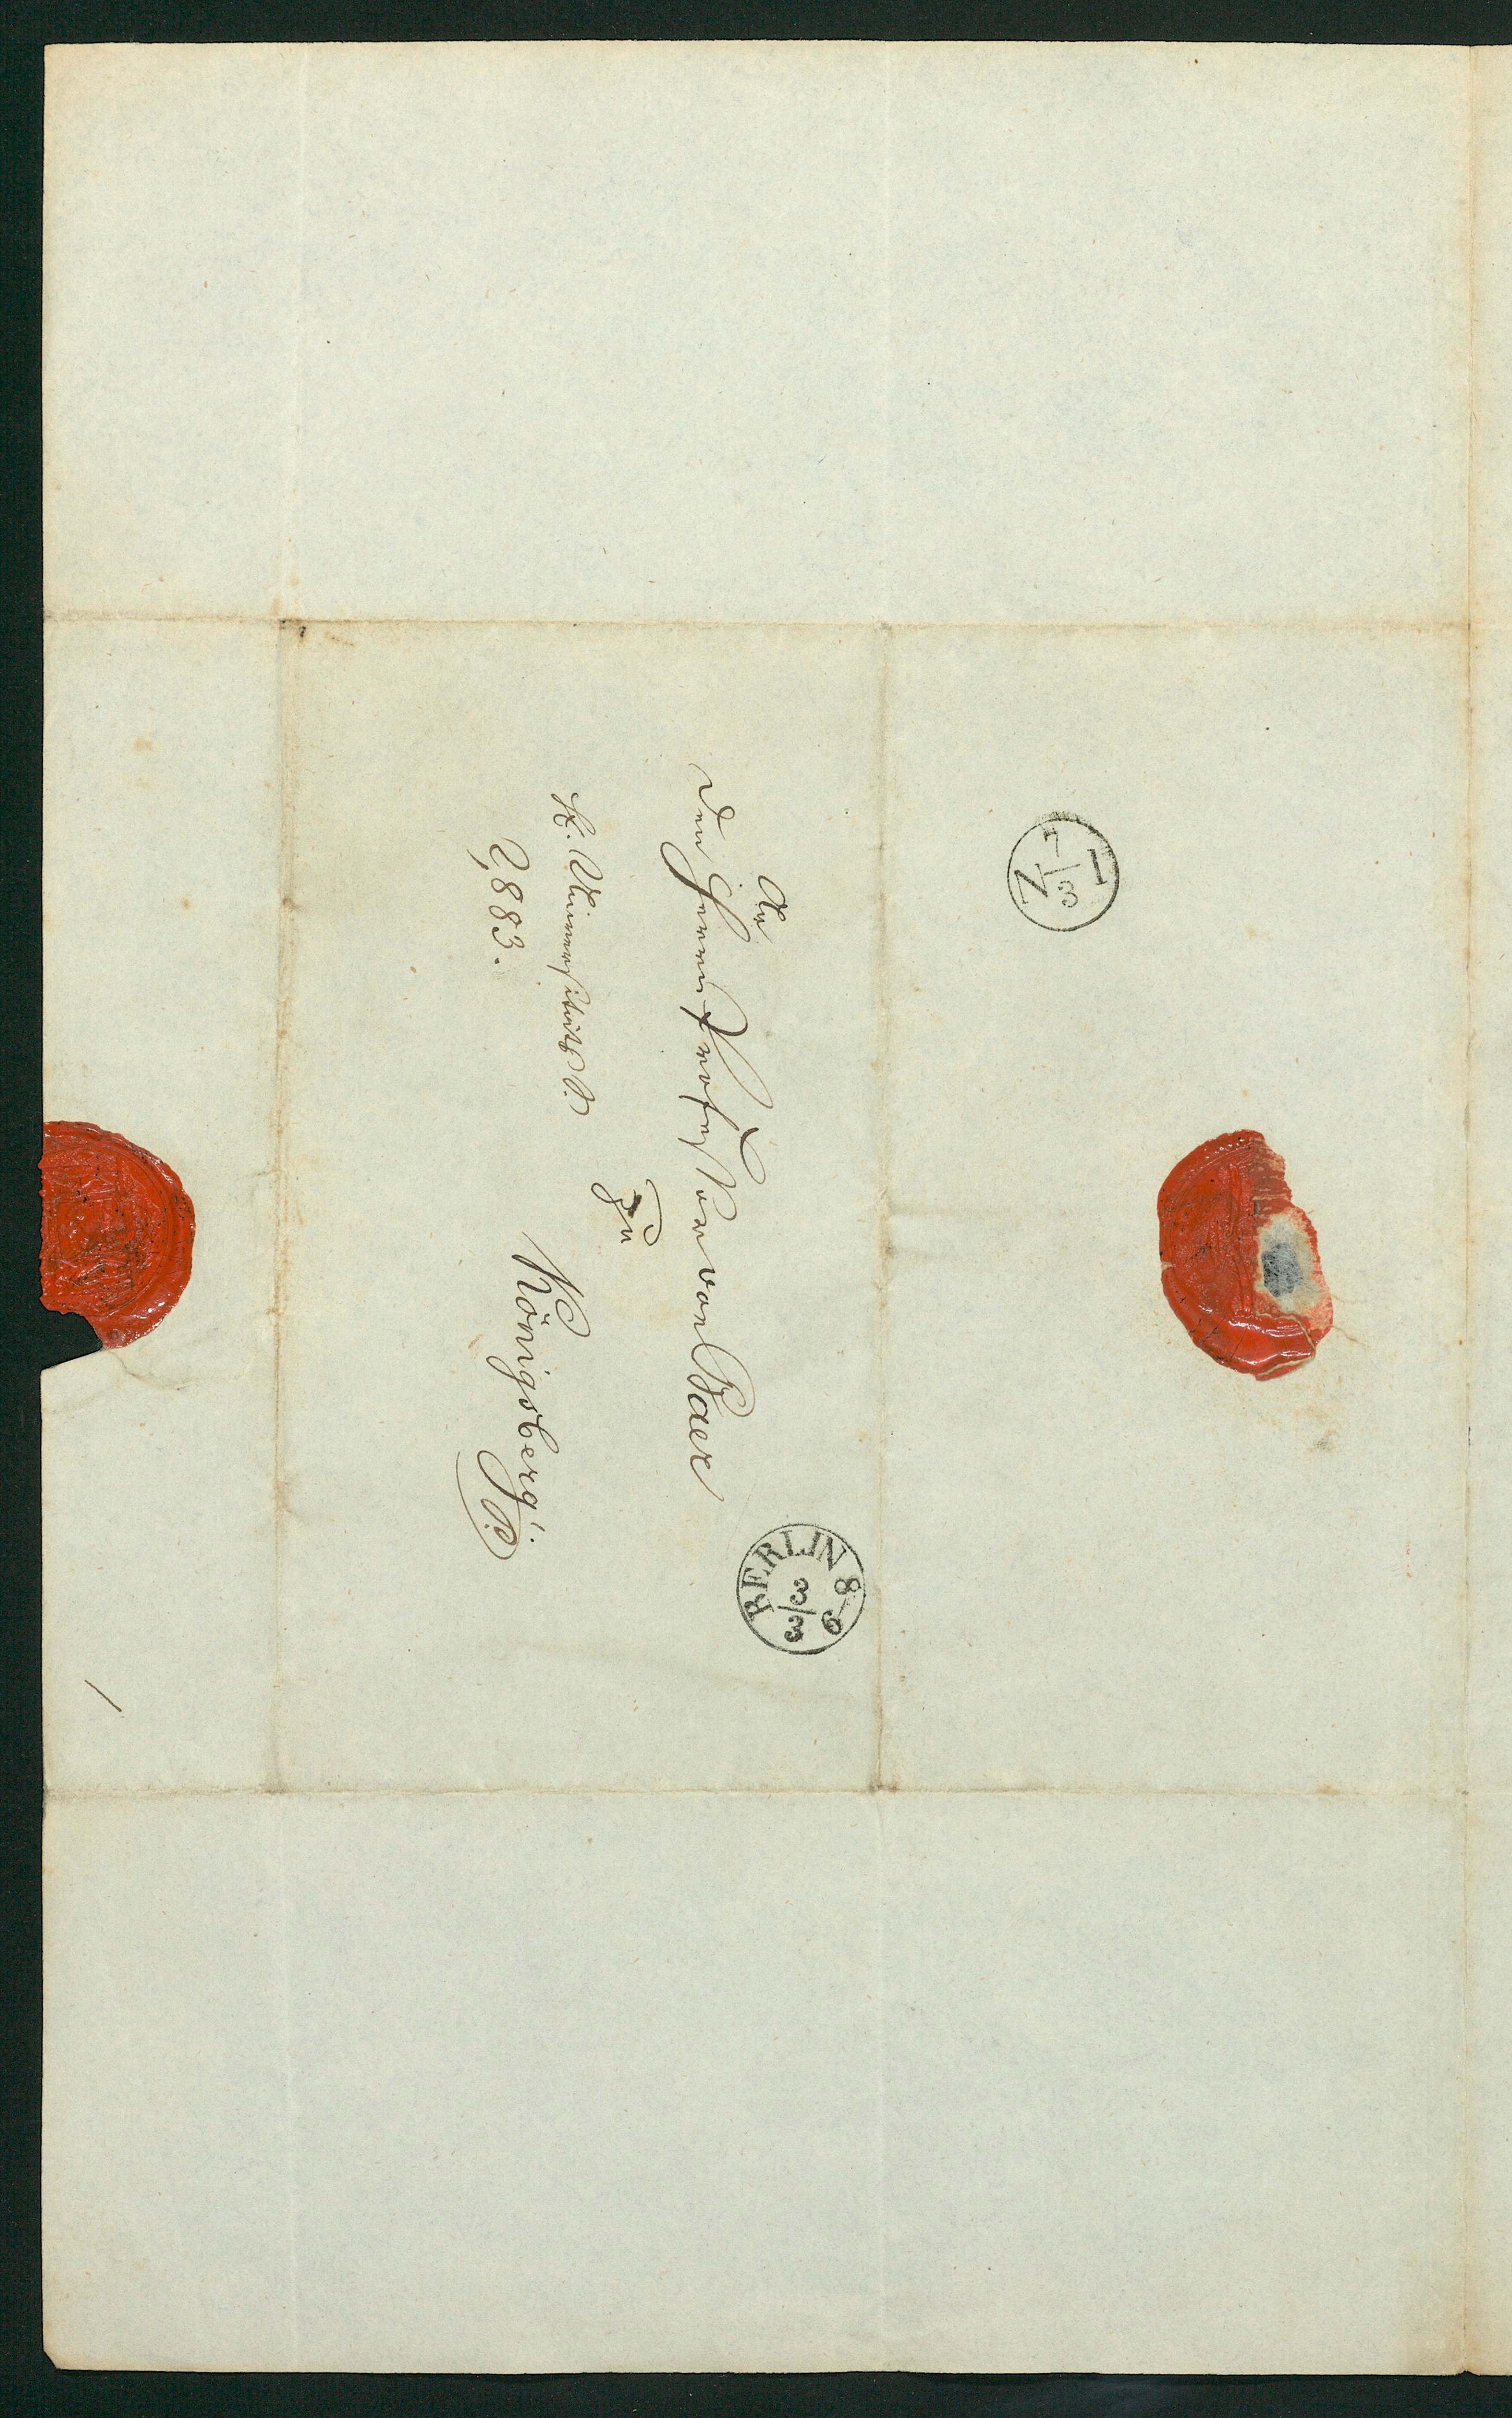 An
den Herrn Professor von Baer
zu
Königsberg.
i/P.
K. Universitäts S.
2,883.
BERLIN 8-9
3/3
N 1
/3 I